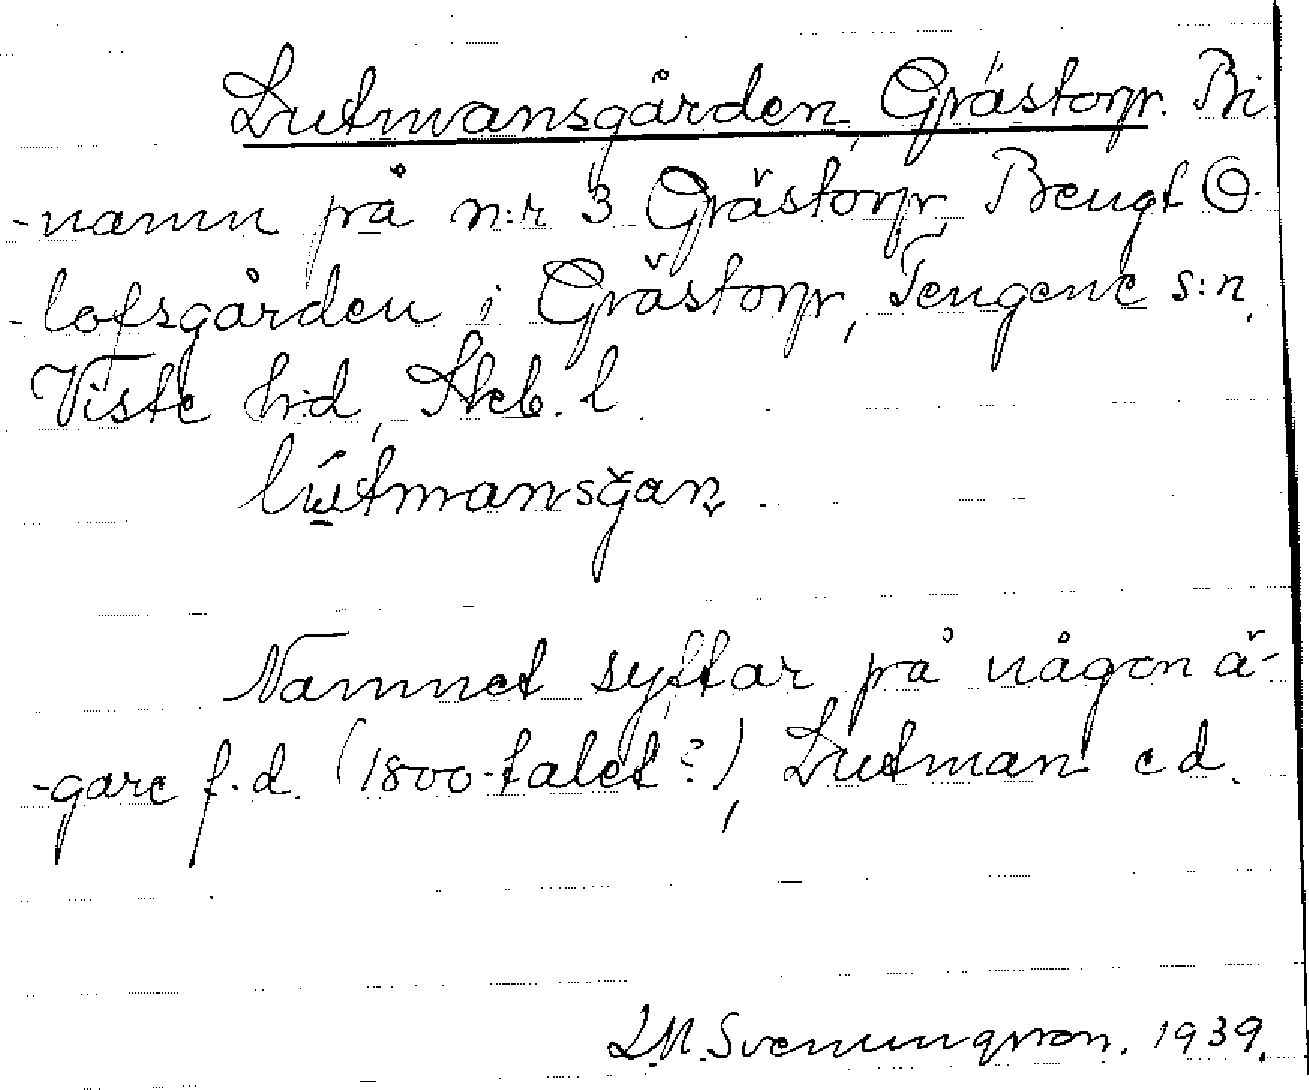 Lutmansgården, Grästorp. Bi
-namn på n:r 3 Grästorp, Bengt O
-lofsgården i Grästorp, Tengene s:n,
Viste h:d, Skb. l.
lútmansǧan̬.
Namnet syftar på någon ä-
-gare f.d. (1800-talet?), Lutman e d.
L.M. Svenungsson. 1939.